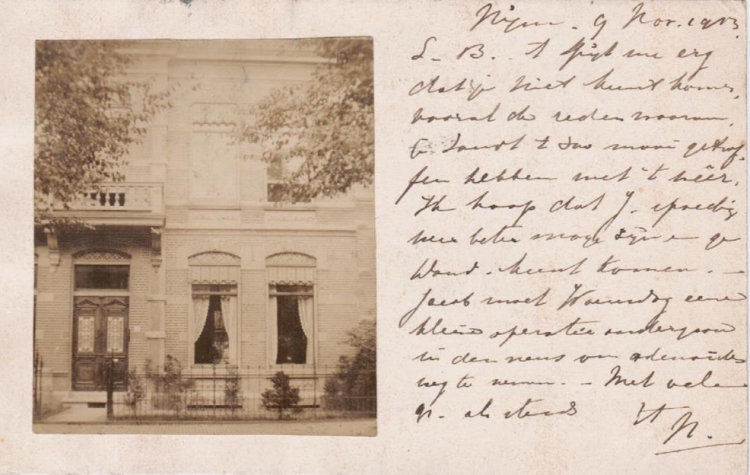 Nijm. 9 Nov. 1903
L. B.. 't spijt me erg
dat je niet kunt komen,
vooral de reden waarom.
Je zoudt 't zoo mooi getrof-
fen hebben met 't weer.
Ik hoop dat J. spoedig
weer beter moge zijn en je
kunt komen. –
Jacob moet Woensdag eene
kleine operatie ondergaan
in den neus om adenoïde
weg te nemen. – Met vele
gr. als steeds
N.